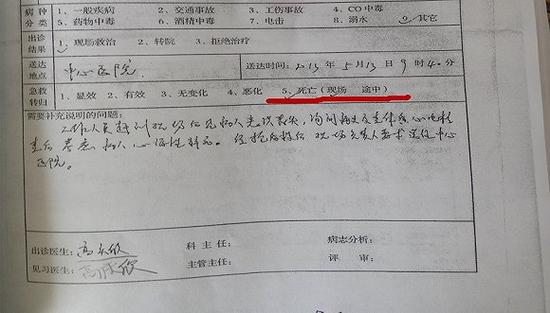 病种分类 1、一般疾病 2、交通事故 3、工伤事故 4、CO中毒
5、药物中毒 6、酒精中毒 7、电击 8、溺水 9、其它
出诊结果 1、现场救治 2、转院 3、拒绝治疗
送达地点 中心医院 送达时间：2015年5月13日9时40分
急救转归 1、显效 2、有效 3、无变化 4、恶化 5、死亡（现场 途中）
需要补充说明的问题：
工作人员赶到现场后见病人意识丧失，询问病史及查体及心电检
查后考虑病人心源性猝死。经抢救后 现场负责人要求送往中心
医院。
出诊医生： 科主任： 病志分析：
见习医生： 主管主任： 评审：